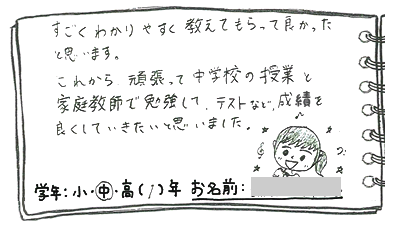 すごくわかりやすく教えてもらって良かった
と思います。
これから頑張って中学校の授業と
家庭教師で勉強して、テストなど、成績を
良くしていきたいと思いました。
学年:小・中・高(1)年 お名前: